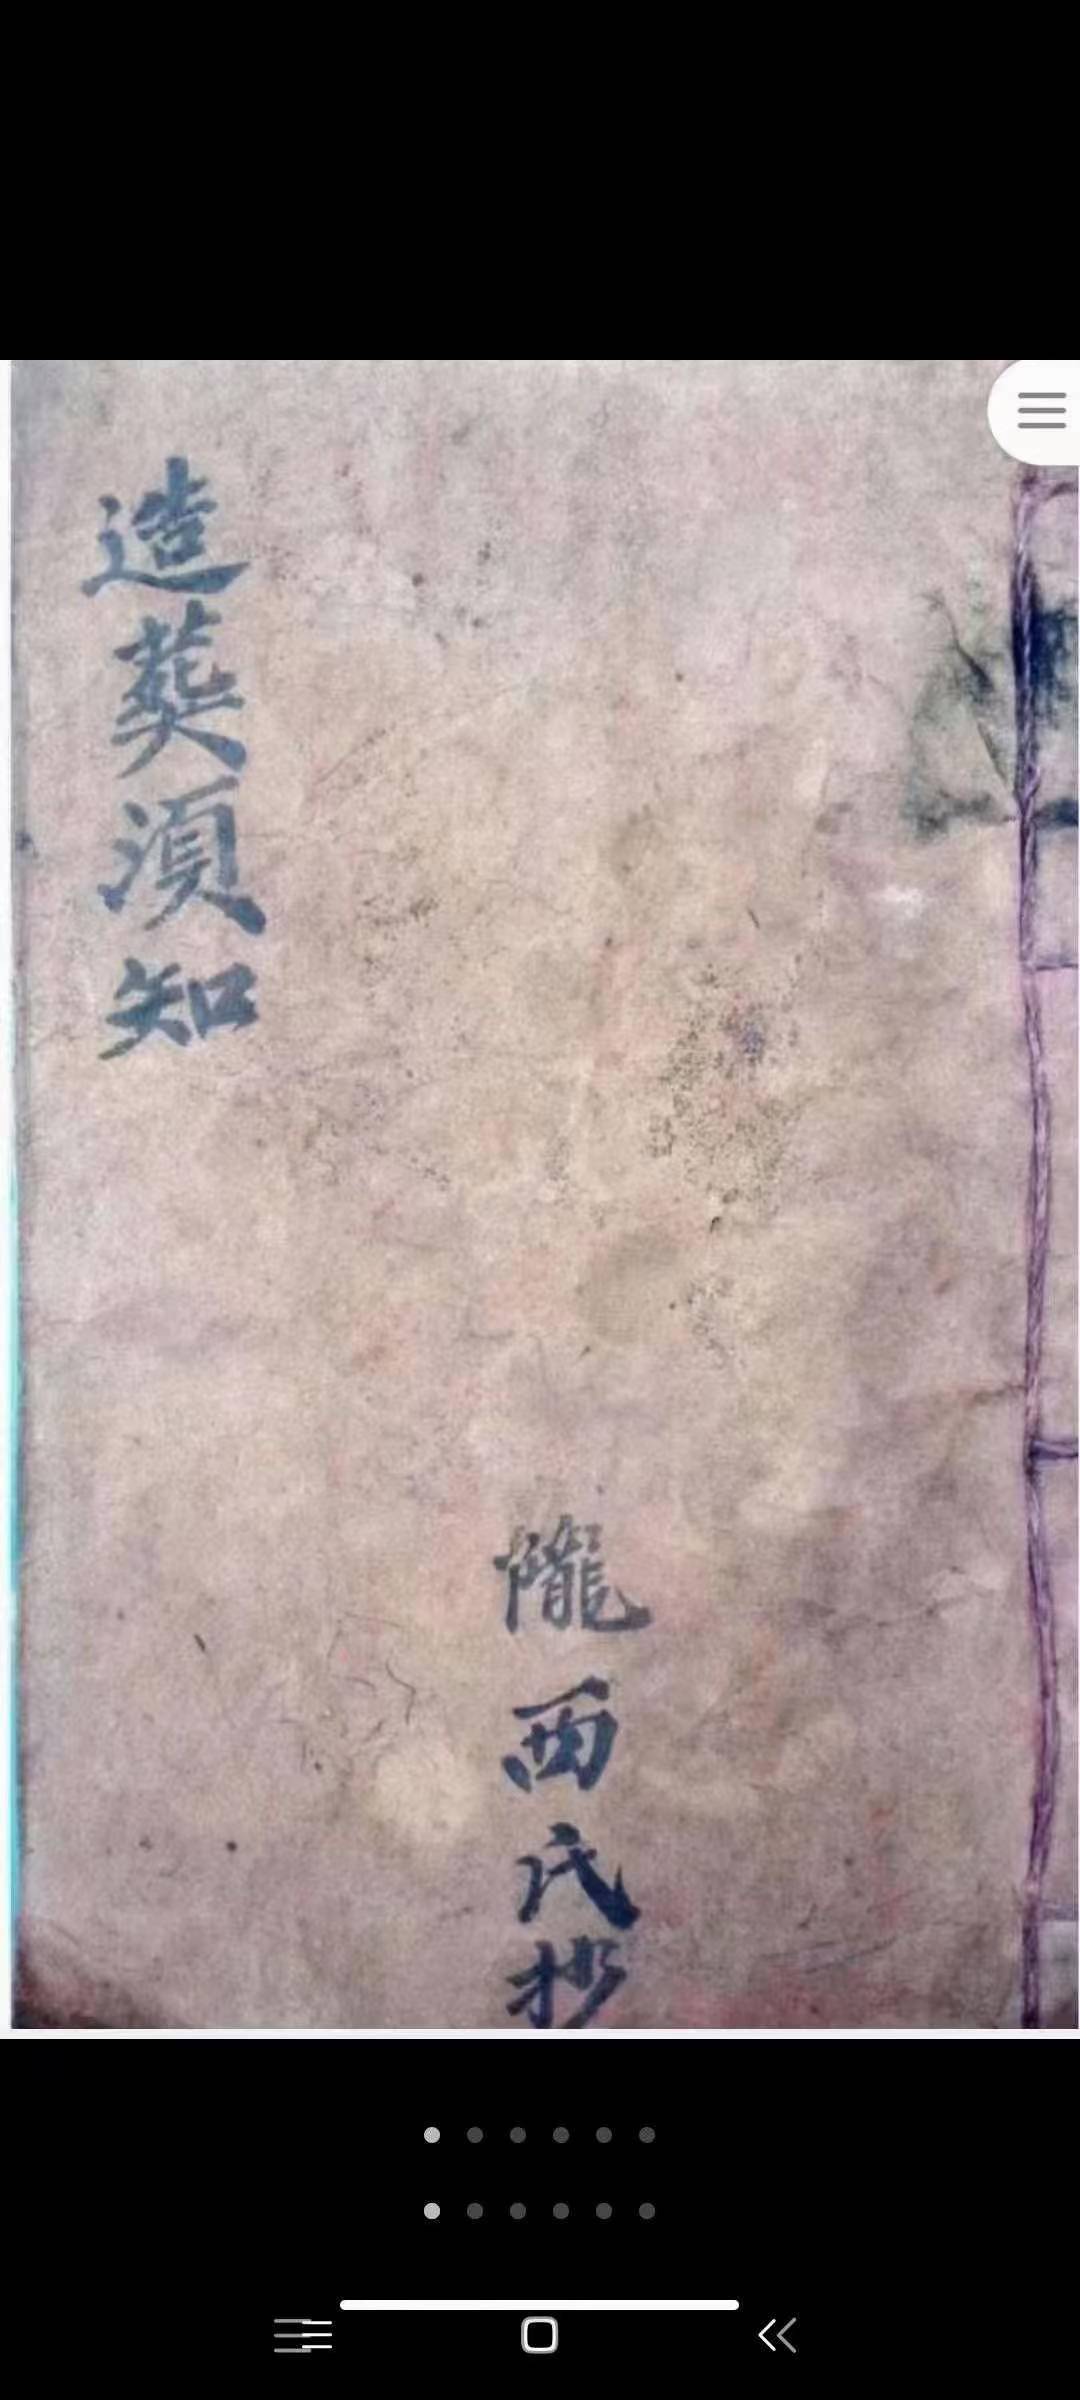 造葬須知
隴西氏抄